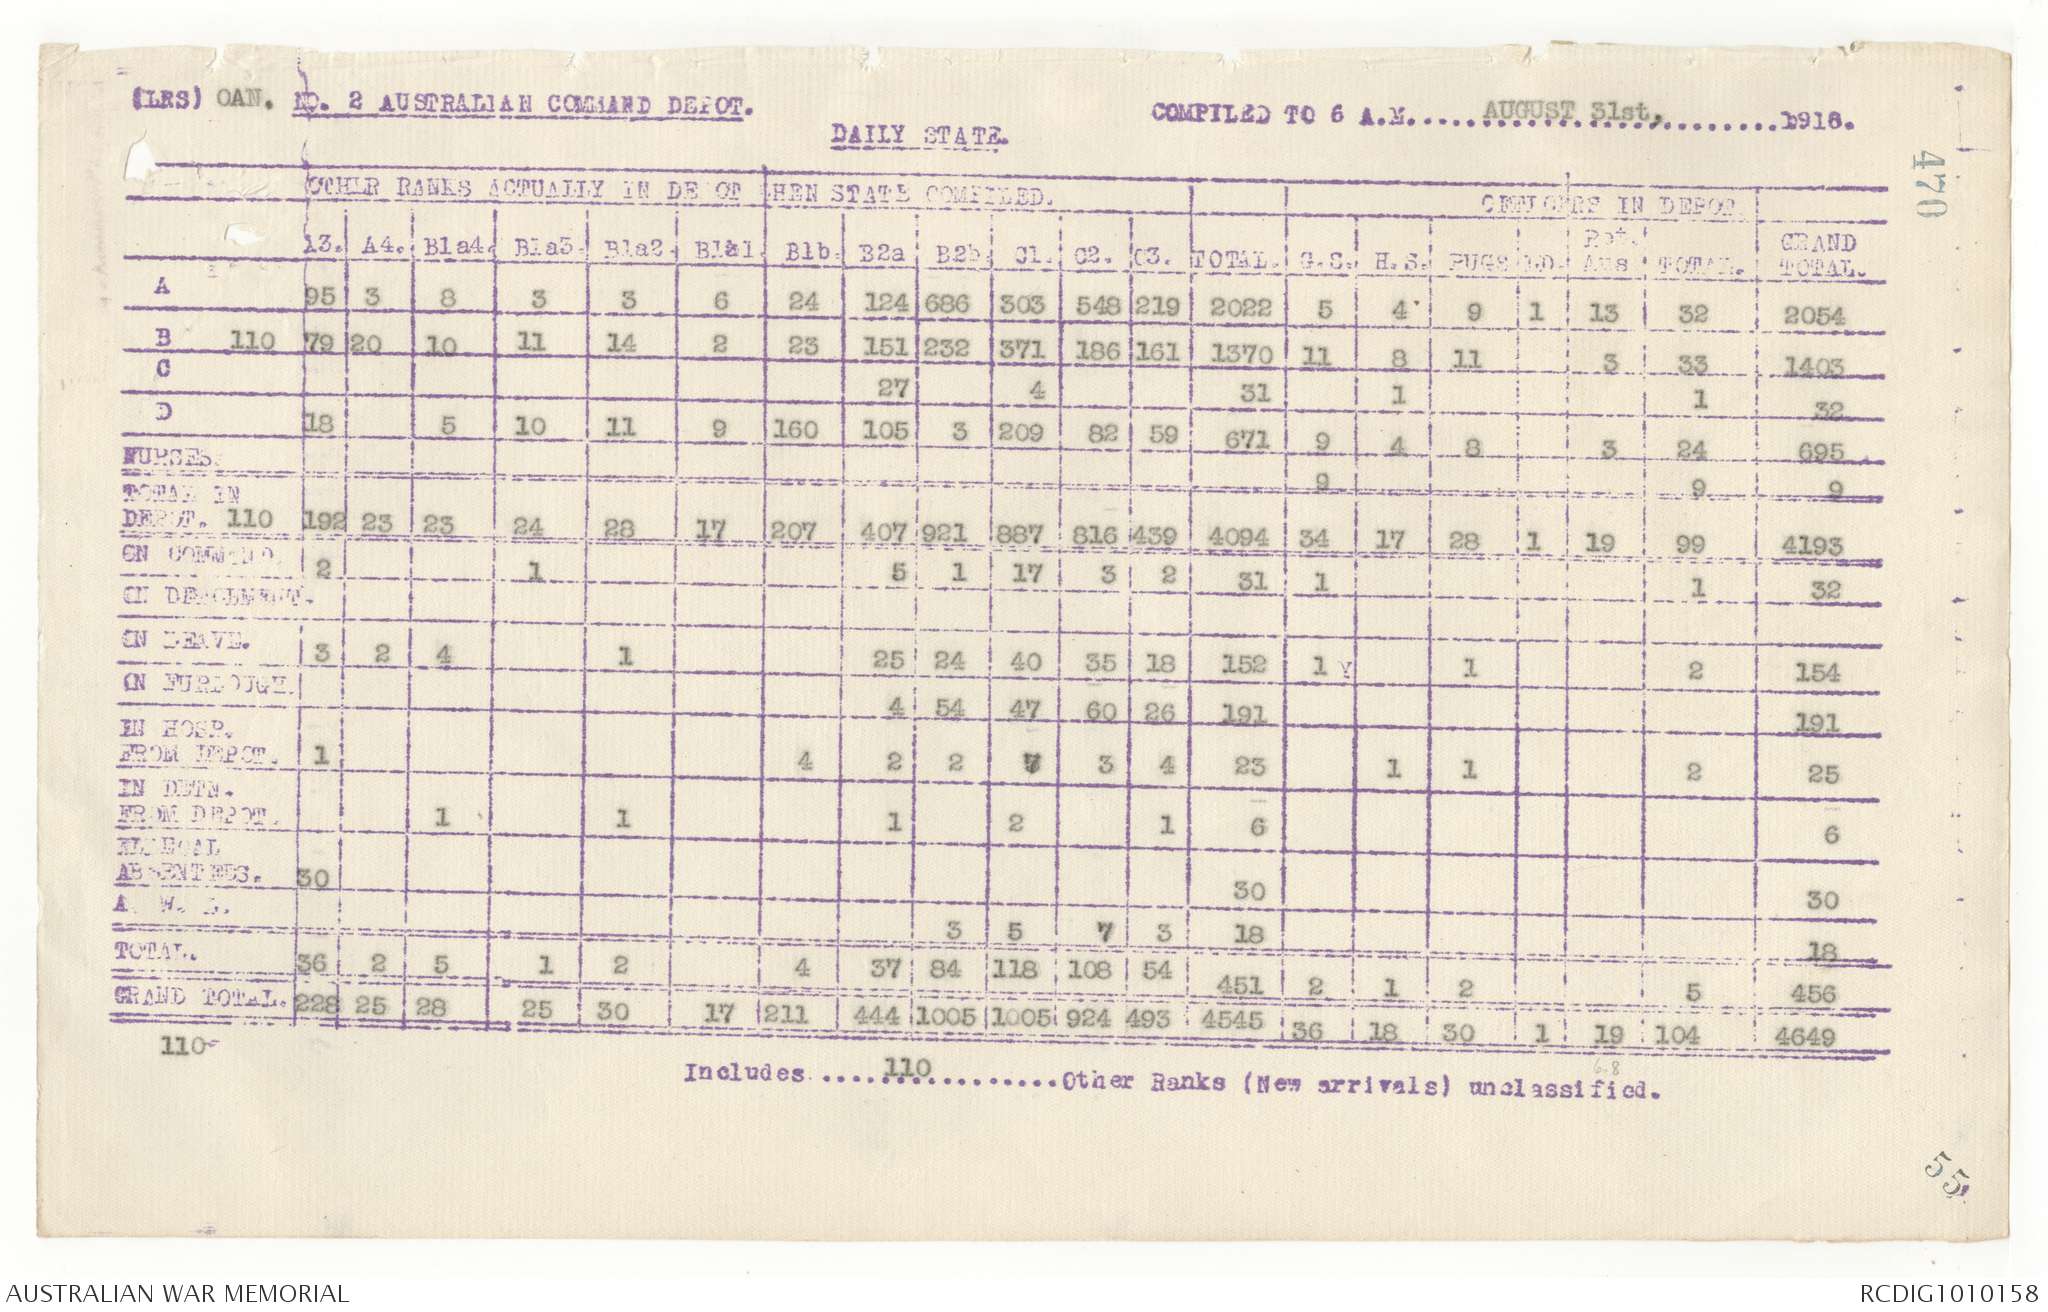 (LRS) OAN. NO. 2 AUSTRALIAN COMMAND DEPOT. COMPILED TO 6 A.M. AUGUST 31st, 1918.
DAILY STATE.
470
OTHER RANKS ACTUALLY IN DEPOT WHEN STATE COMPILED. OFFICERS IN DEPOT.
A3. A4. B1a4. B1a3. B1a2. B1a1. B1b. B2a B2b. C1. C2. C3. TOTAL. G.S. H.S. PUGS I.D. Ret. Aus TOTAL. GRAND TOTAL.
A 95 3 8 3 3 6 24 124 686 303 548 219 2022 5 4 9 1 13 32 2054
B 110 79 20 10 11 14 2 23 151 232 371 186 161 1370 11 8 11 3 33 1403
C 27 4 31 1 1 32
D 18 5 10 11 9 160 105 3 209 82 59 671 9 4 8 3 24 695
NURSES. 9 9 9
TOTAL IN
DEPOT. 110 192 23 23 24 28 17 207 407 921 887 816 439 4094 34 17 28 1 19 99 4193
ON COMMAND. 2 1 5 1 17 3 2 31 1 1 32
ON DETACHMENT.
ON LEAVE. 3 2 4 1 25 24 40 35 18 152 1 Y 1 2 154
ON FURLOUGH. 4 54 47 60 26 191 191
IN HOSP.
FROM DEPOT. 1 4 2 2 7 3 4 23 1 1 2 25
IN DETN.
FROM DEPOT. 1 1 1 2 1 6 6
ILLEGAL
ABSENTEES. 30 30 30
A. W. L. 3 5 7 3 18 18
TOTAL. 36 2 5 1 2 4 37 84 118 108 54 451 2 1 2 5 456
GRAND TOTAL. 228 25 28 25 30 17 211 444 1005 1005 924 493 4545 36 18 30 1 19 104 4649
110
68
Includes.....110.................Other Ranks (New arrivals) unclassified.
55.
AUSTRALIAN WAR MEMORIAL RCDIG1010158